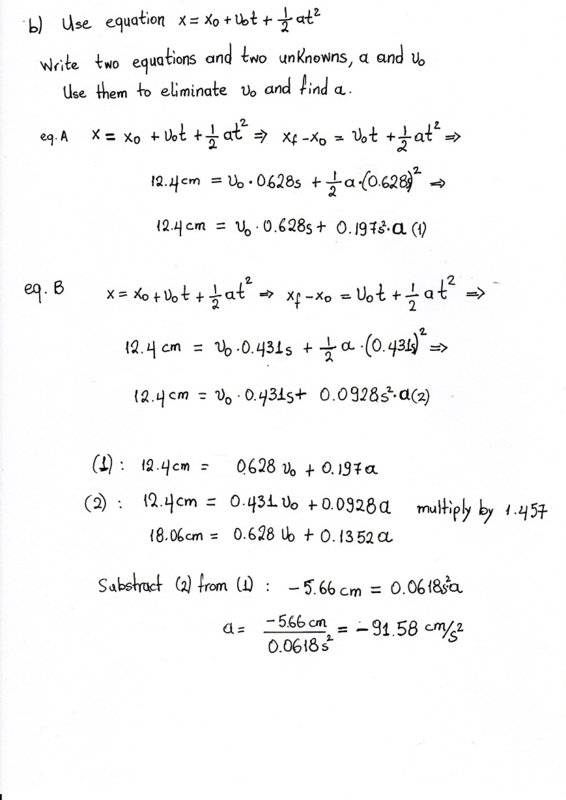 b) Use equation x = x₀ + v₀t + 1/2 at²
Write two equations and two unknowns, a and v₀
Use them to eliminate v₀ and find a.
eq. A x = x₀ + v₀t + 1/2 at² ⇒ xf - x₀ = v₀t + 1/2 at² ⇒
12.4 cm = v₀ · 0.628s + 1/2 a · (0.628s)² ⇒
12.4 cm = v₀ · 0.628s + 0.197s² · a (1)
eq. B x = x₀ + v₀t + 1/2 at² ⇒ xf - x₀ = v₀t + 1/2 at² ⇒
12.4 cm = v₀ · 0.431s + 1/2 a · (0.431s)² ⇒
12.4 cm = v₀ · 0.431s + 0.0928s² · a (2)
(1) : 12.4 cm = 0.628 v₀ + 0.197a
(2) : 12.4 cm = 0.431 v₀ + 0.0928a multiply by 1.457
18.06 cm = 0.628 v₀ + 0.1352a
Substract (2) from (1) : -5.66 cm = 0.0618s²a
a = -5.66 cm / 0.0618 s² = -91.58 cm/s²